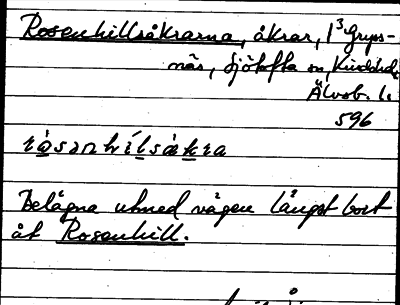 Rosenhillsåkrarna, åkrar, 1³ Gryps-
näs, Sjötofta sn, Kinds hd,
Älvsb. l.
596
rȧsənhílsákra
Belägna utmed vägen längst bort
åt Rosenhill.